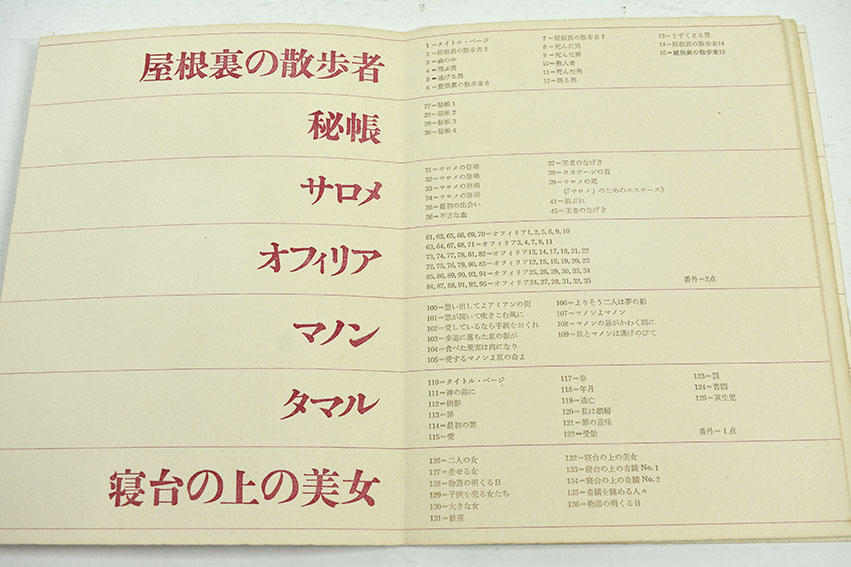 屋根裏の散歩者
1=タイトル・ページ
2=屋根裏の散歩者2
3=森の中
4=飛ぶ男
5=逃げる男
6=屋根裏の散歩者6
7=屋根裏の散歩者7
8=死んだ男
9=死んだ男
10=殺人者
11=死んだ男
12=踊る男
13=うずくまる男
14=屋根裏の散歩者14
15=屋根裏の散歩者15
秘帳
27=秘帳1
28=秘帳2
29=秘帳3
30=秘帳4
サロメ
31=サロメの登場
32=サロメの登場
33=サロメの登場
34=サロメの登場
35=最初の出会い
36=不吉な血
37=王者のなげき
38=ヨカナーンの首
39=サロメの死
《「サロメ」のためのエスキース》
41=前ぶれ
45=王者のなげき
オフィリア
61, 62, 65, 66, 69, 70=オフィリア1, 2, 5, 6, 9, 10
63, 64, 67, 68, 71=オフィリア3, 4, 7, 8, 11
73, 74, 77, 78, 81, 82=オフィリア13, 14, 17, 18, 21, 22
72, 75, 76, 79, 80, 83=オフィリア12, 15, 16, 19, 20, 23
85, 86, 89, 90, 93, 94=オフィリア25, 26, 29, 30, 33, 34
84, 87, 88, 91, 92, 95=オフィリア24, 27, 28, 31, 32, 35
番外=2点
マノン
100=想い出してよアミアンの街
101=窓が開いて吹きこむ風に
102=愛しているなら手紙をおくれ
103=歩道に落ちた私の影が
104=食べた果実は肉になり
105=愛するマノンよ私の命よ
106=よりそう二人は夢の船
107=マノンよマノン
108=マノンの唇がかわく間に
109=私とマノンは逃げのびて
タマル
110=タイトル・ページ
111=神の前に
112=樹影
113=罪
114=最初の罪
115=愛
117=春
118=年月
119=逃亡
120=私は娼婦
121=罪の意味
122=受胎
123=罰
124=苦悶
125=双生児
番外=1点
寝台の上の美女
126=二人の女
127=坐せる女
128=物語の明くる日
129=子供を売る女たち
130=大きな女
131=歓喜
132=寝台の上の美女
133=寝台の上の奇蹟 No. 1
134=寝台の上の奇蹟 No. 2
135=奇蹟を眺める人々
136=物語の明くる日